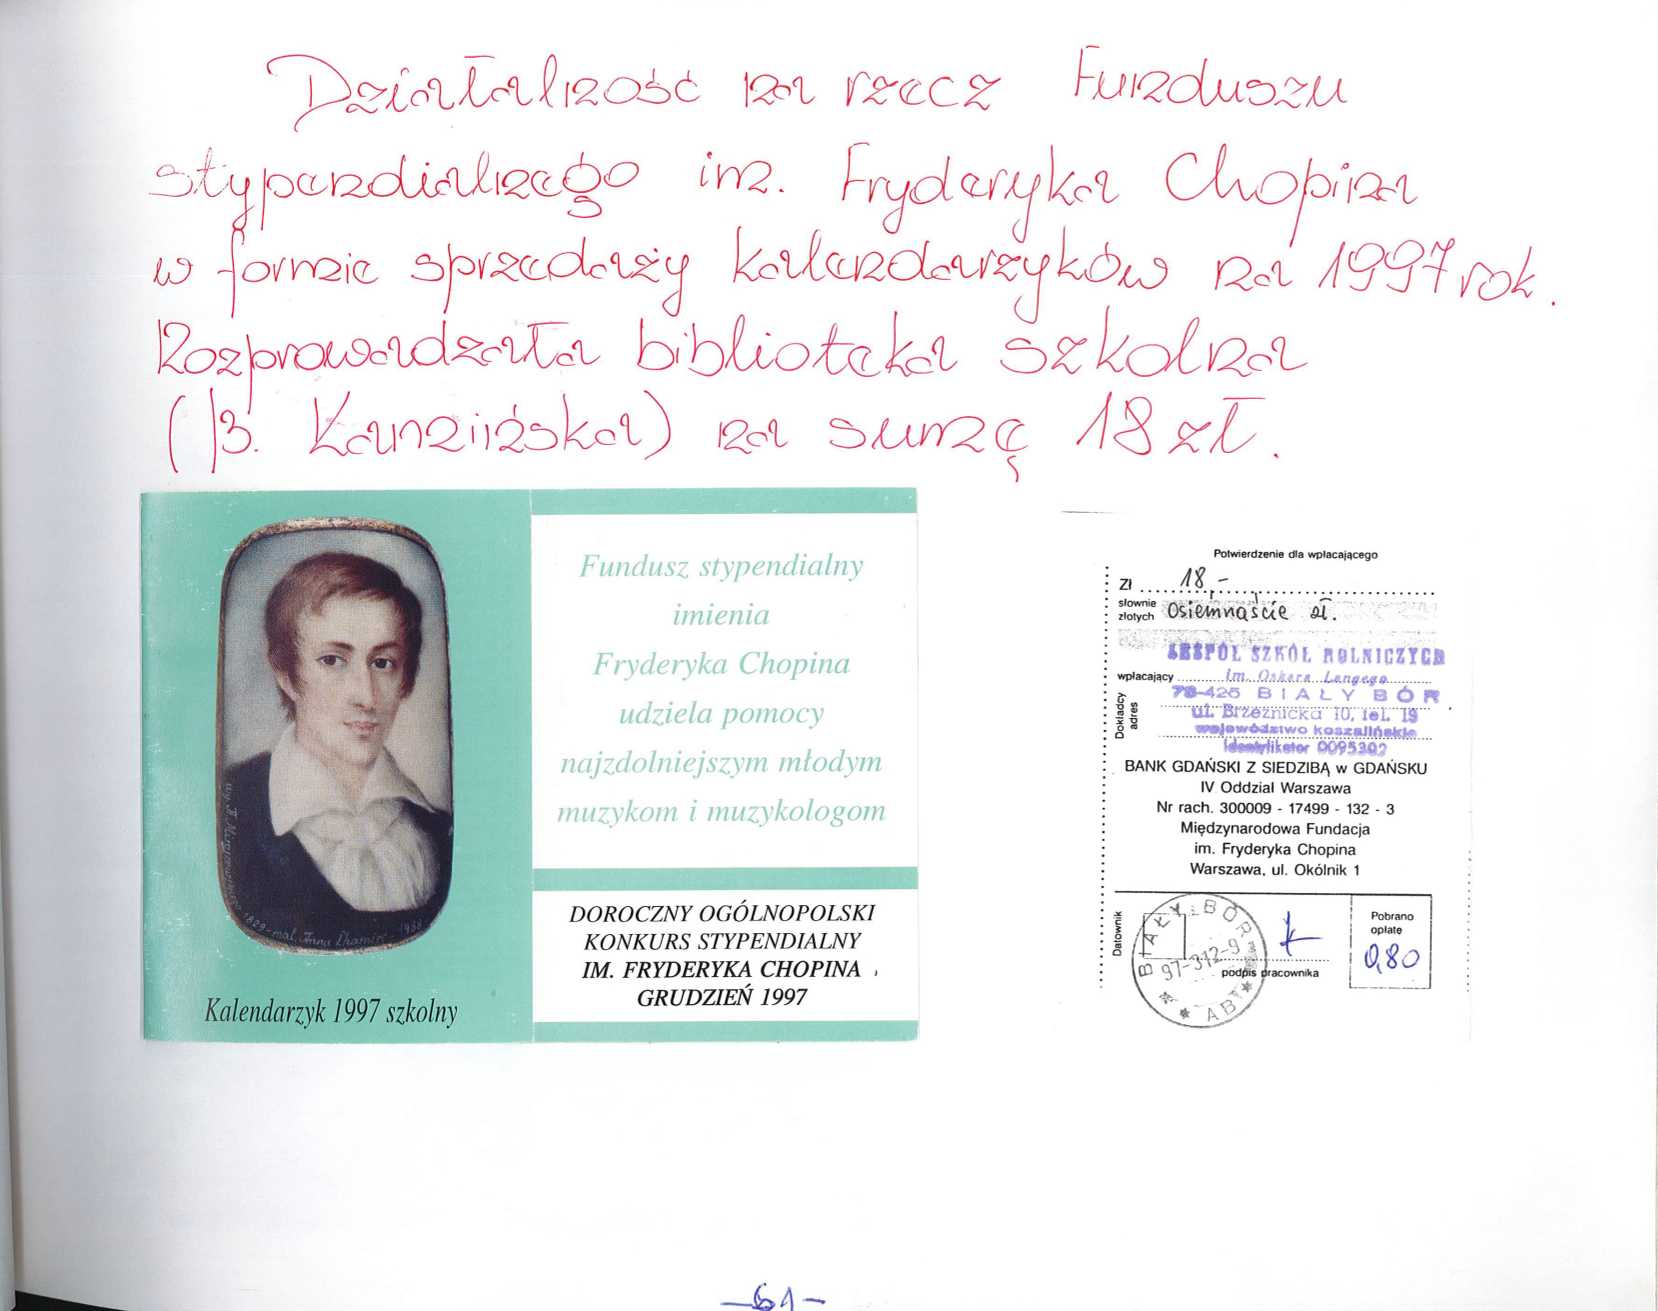 Działalność na rzecz Funduszu
stypendialnego im. Fryderyka Chopina
w formie sprzedaży kalendarzyków na 1997 rok.
Rozprowadzała biblioteka szkolna
(B. Kamzińska) na sumę 18 zł.
Fundusz stypendialny
imienia
Fryderyka Chopina
udziela pomocy
najzdolniejszym młodym
muzykom i muzykologom
DOROCZNY OGÓLNOPOLSKI
KONKURS STYPENDIALNY
IM. FRYDERYKA CHOPINA
GRUDZIEŃ 1997
1829 - mal. Anna Chamiec - 1968
Kalendarzyk 1997 szkolny
Potwierdzenie dla wpłacającego
Zł 18,-
słownie złotych osiemnaście zł.
ZESPÓŁ SZKÓŁ ROLNICZYCH
wpłacający im. Oskara Langego
78-425 BIAŁY BÓR
Dokładny adres
ul. Brzeźnicka 10, tel. 19
województwo koszalińskie
Identyfikator 0095302
BANK GDAŃSKI Z SIEDZIBĄ w GDAŃSKU
IV Oddział Warszawa
Nr rach. 300009 - 17499 - 132 - 3
Międzynarodowa Fundacja
im. Fryderyka Chopina
Warszawa, ul. Okólnik 1
Datownik
BIAŁY BÓR
97-312-9
podpis pracownika
Pobrano
opłate
0,80
-61-